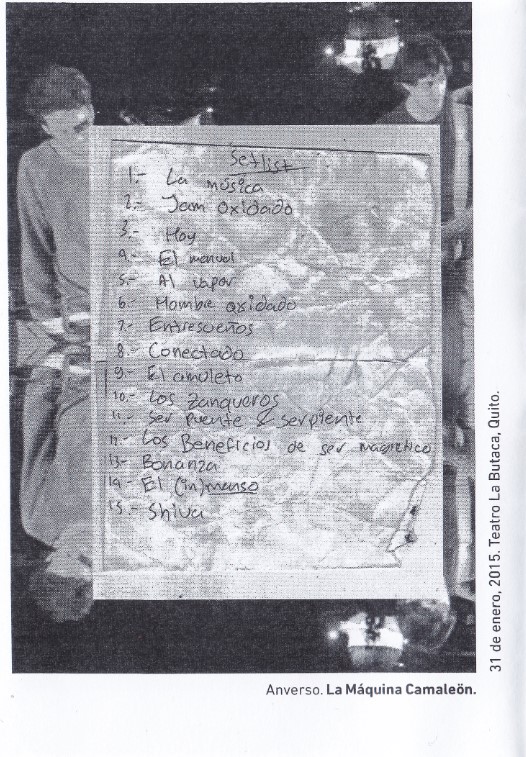 Setlist
1.- La música
2.- Jam oxidado
3.- Hoy
4.- El menual
5.- Al vapor
6.- Hombre oxidado
7.- Entresueños
8.- Conectado
9.- El amuleto
10.- Los zanqueros
11.- Ser puente & serpiente
12.- Los Beneficios de ser magnético
13.- Bonanza
14.- El (in)menso
15.- Shiva
31 de enero, 2015. Teatro La Butaca, Quito.
Anverso. La Máquina Camaleön.